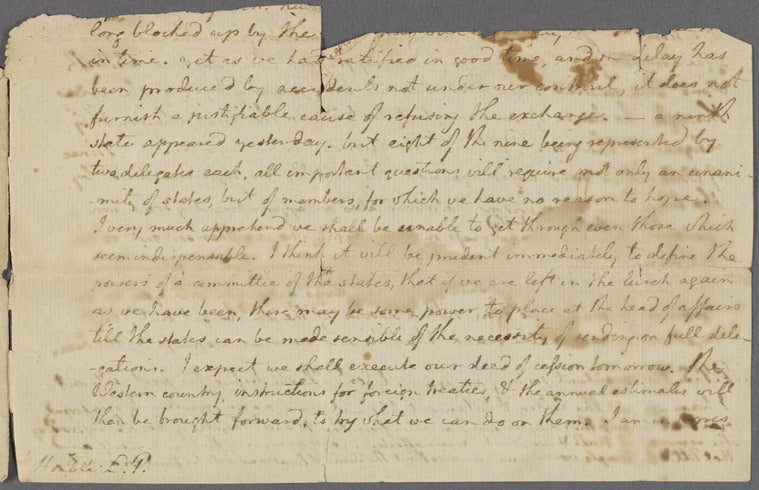 long blocked up by the
in time. yet as we had ratified in good time, and delay has
been produced by accidents not under our controul, it does not
furnish a justifiable cause of refusing the exchange. — a ninth
state appeared yesterday. but eight of the nine being represented by
two delegates each, all important questions will require not only an unani-
-mity of states, but of members, for which we have no reason to hope.
I very much apprehend we shall be unable to get through even those which
seem indispensable. I think it will be prudent immediately to define the
powers of a committee of the states, that if we are left in the lurch again
as we have been, there may be some power to place at the head of affairs
till the states can be made sensible of the necessity of sending on full dele-
-gations. I expect we shall execute our deed of cession tomorrow. The
Western country, instructions for foreign treaties, & the annual estimates will
then be brought forward, to try what we can do on them. I am in
Honble. E. P.